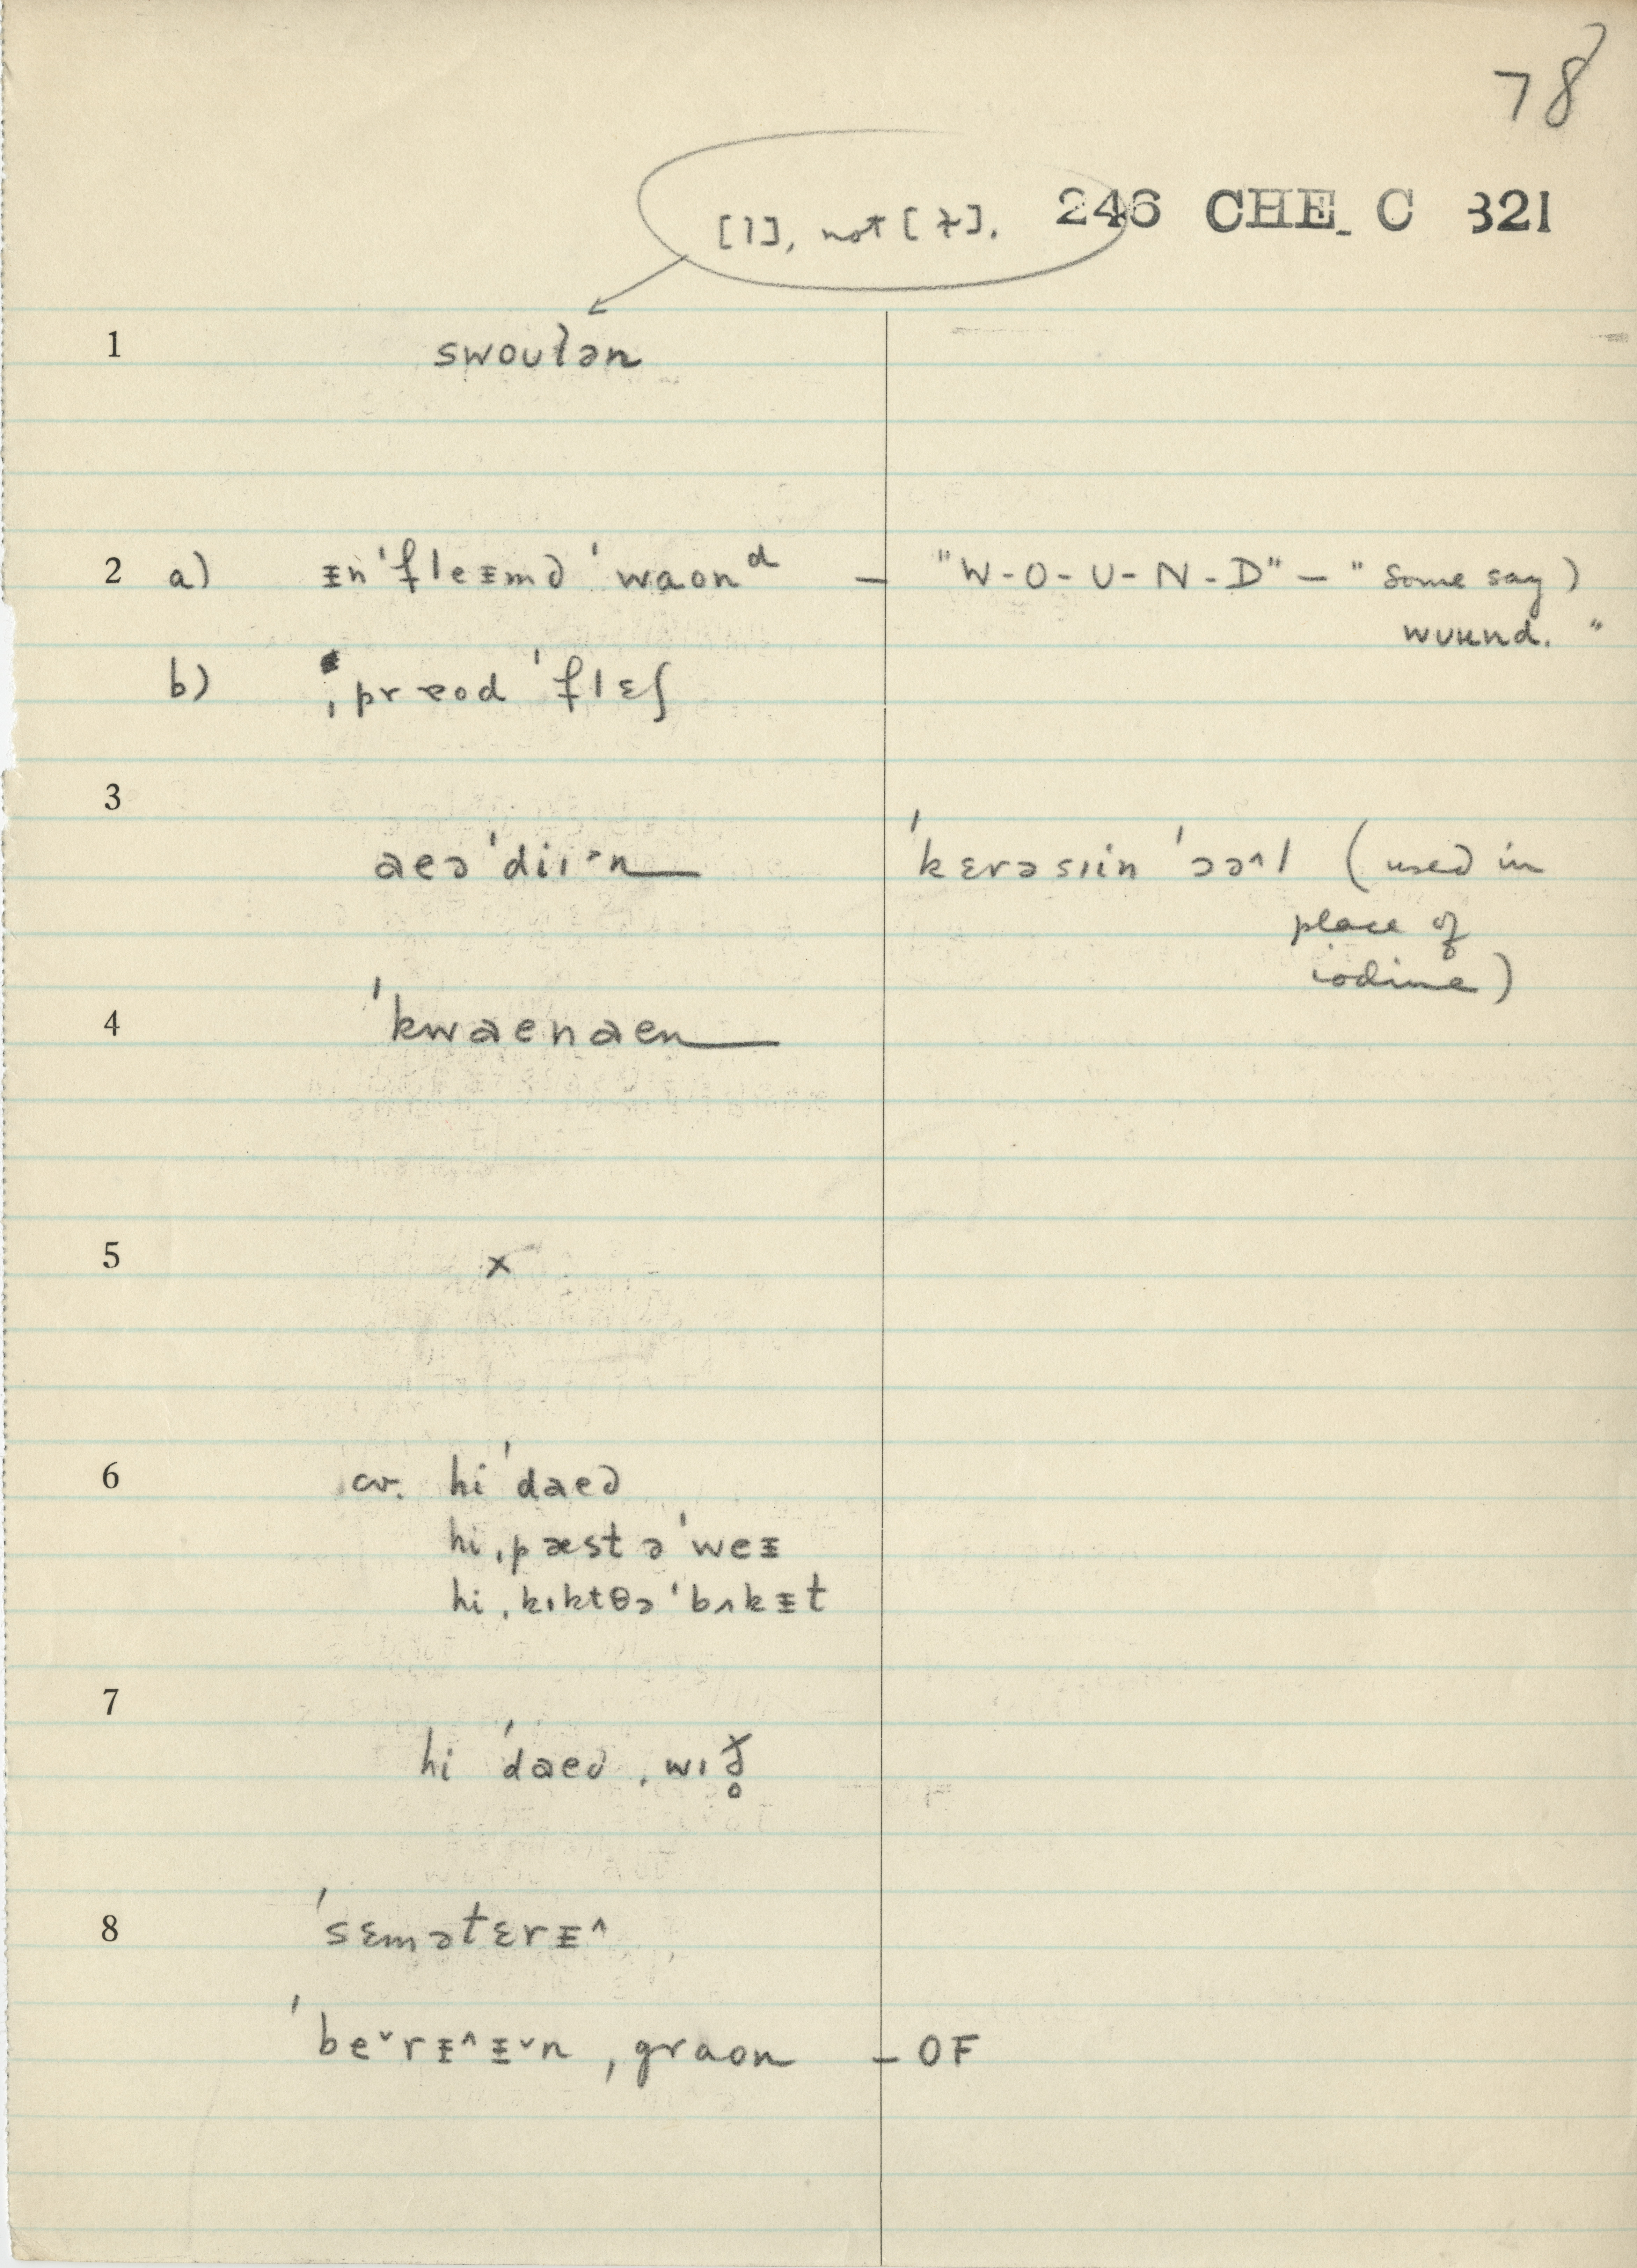 78
[l], not [ɫ]. 246 CHE C 321
1 swoulən
2 a) ᵻn'fleᵻmd 'waonᵈ — "W-O-U-N-D" — "some say)
wuʉnd."
b) ˌpraod 'flɛʃ
3
aeə'diɪᵊn 'kɛrəsɪin 'ɔɔ^l (used in
place of
iodine)
4 'kwaenaen
5 x
6 cv. hi 'daed
hi ˌpæst ə'weᵻ
hi ˌkɪktθə 'bʌkᵻt
7
hi 'daed ˌwɪð̥
8 'sɛmətɛrᵻ^
'beˇrᵻ^ᵻˇn ˌgraon — OF